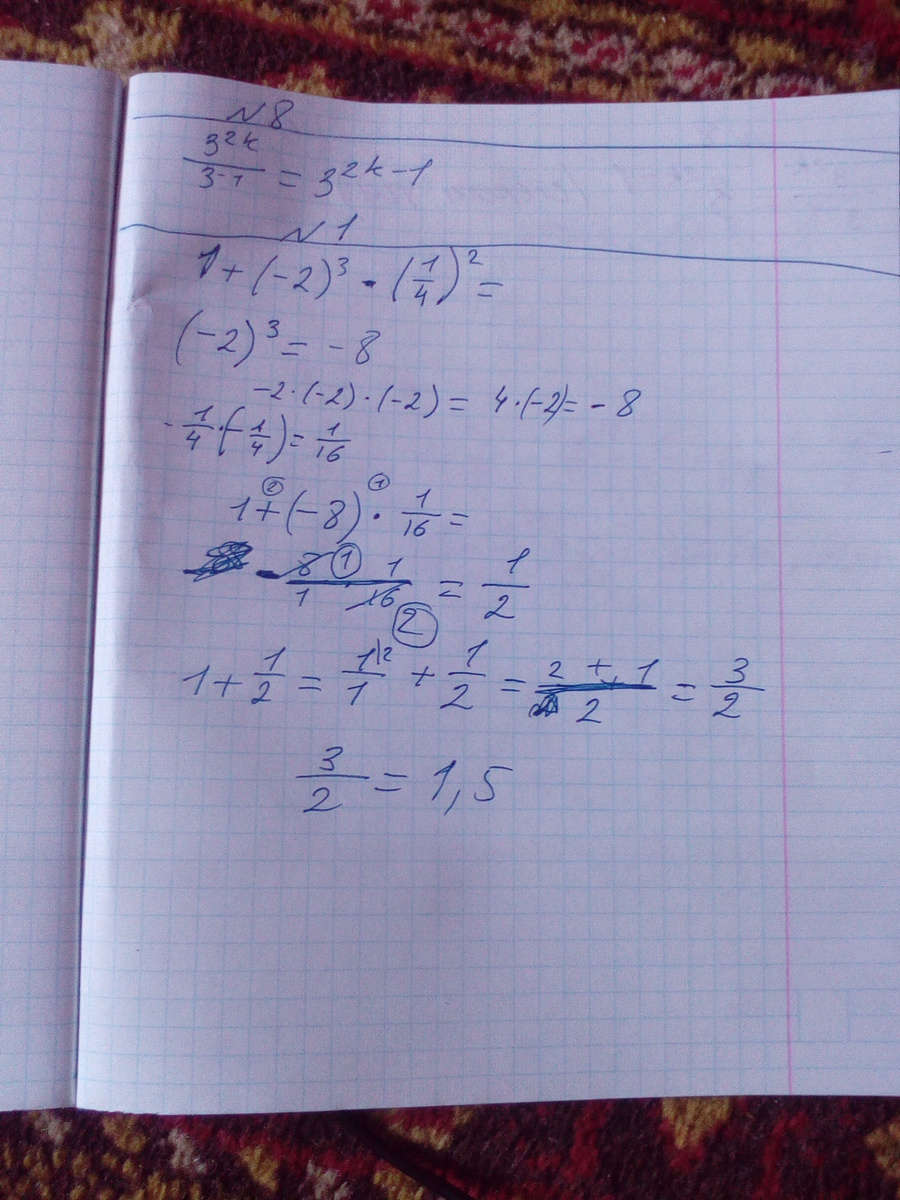 N 8
3^{2k}/3^{-1} = 3^{2k-1}
N 1
1 + (-2)^3 · (1/4)^2 =
(-2)^3 = -8
-2 · (-2) · (-2) = 4 · (-2) = -8
-1/4 · (-1/4) = 1/16
1 + (-8) · 1/16 =
② ①
- 8 ① 1 / 1 · 16 ② = 1/2
1 + 1/2 = 1^{|2}/1 + 1/2 = 2 + 1/2 = 3/2
3/2 = 1,5